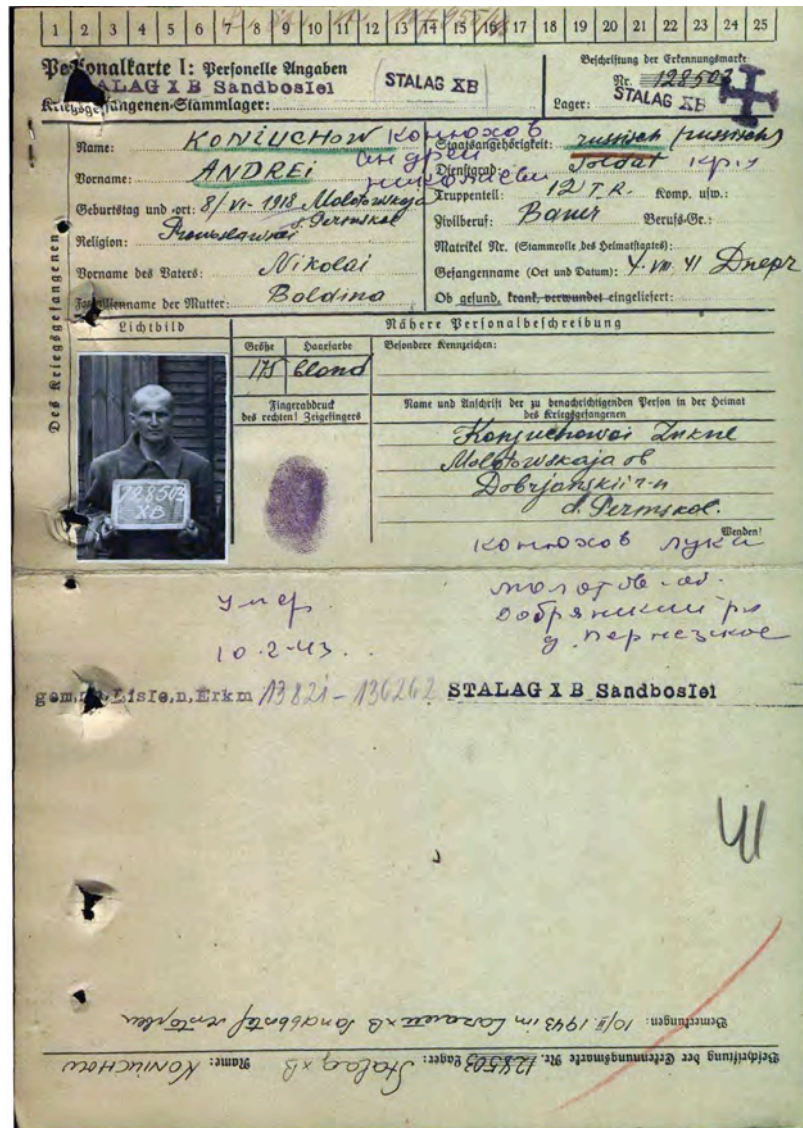 1 2 3 4 5 6 7 8 9 10 11 12 13 14 15 16 17 18 19 20 21 22 23 24 25
Personalkarte I: Personelle Angaben
STALAG X B Sandbostel
Kriegsgefangenen-Stammlager:
STALAG XB
Beschriftung der Erkennungsmarke
Nr. 128503
Lager: STALAG XB
Des Kriegsgefangenen
Name: KONIUCHOW Конюхов
Vorname: ANDREI андрей
Geburtstag und -ort: 8/VI-1918 Molotowskaja
d. Permskol
Religion:
Vorname des Vaters: Nikolai
Familienname der Mutter: Boldina
Staatsangehörigkeit: russisch (russisch)
Dienstgrad: Soldat кр.
Truppenteil: 12 T.R. Komp. usw.:
Zivilberuf: Bauer Berufs-Gr.:
Matrikel Nr. (Stammrolle des Heimatstaates):
Gefangennahme (Ort und Datum): 4.VIII.41 Dnepr
Ob gesund, krank, verwundet eingeliefert:
Lichtbild
128503
XB
Größe Haarfarbe
175 blond
Fingerabdruck
des rechten! Zeigefingers
Nähere Personalbeschreibung
Besondere Kennzeichen:
Name und Anschrift der zu benachrichtigenden Person in der Heimat
des Kriegsgefangenen
Molotowskaja ob
Dobrjanskii r-n
d. Permskol.
Wenden!
Конюхов лука
молотов. об.
д. пернезское
умер.
10.2-43.
STALAG X B Sandbostel
41
Bemerkungen: 10/II.1943 im Lazarett XB Sandbostel verstorben
Beschriftung der Erkennungsmarke Nr. 128503 Lager: Stalag XB Name: KONIUCHOW